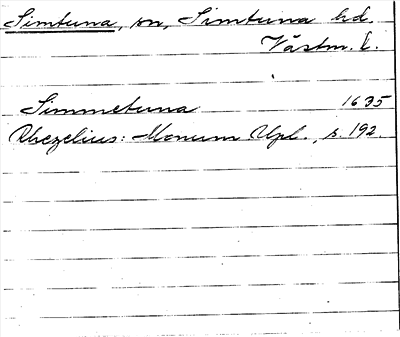 Simtuna, sn, Simtuna hd.
Västm. l.
Simmetuna 1635
Rhezelius: Monum Upl., s. 192.